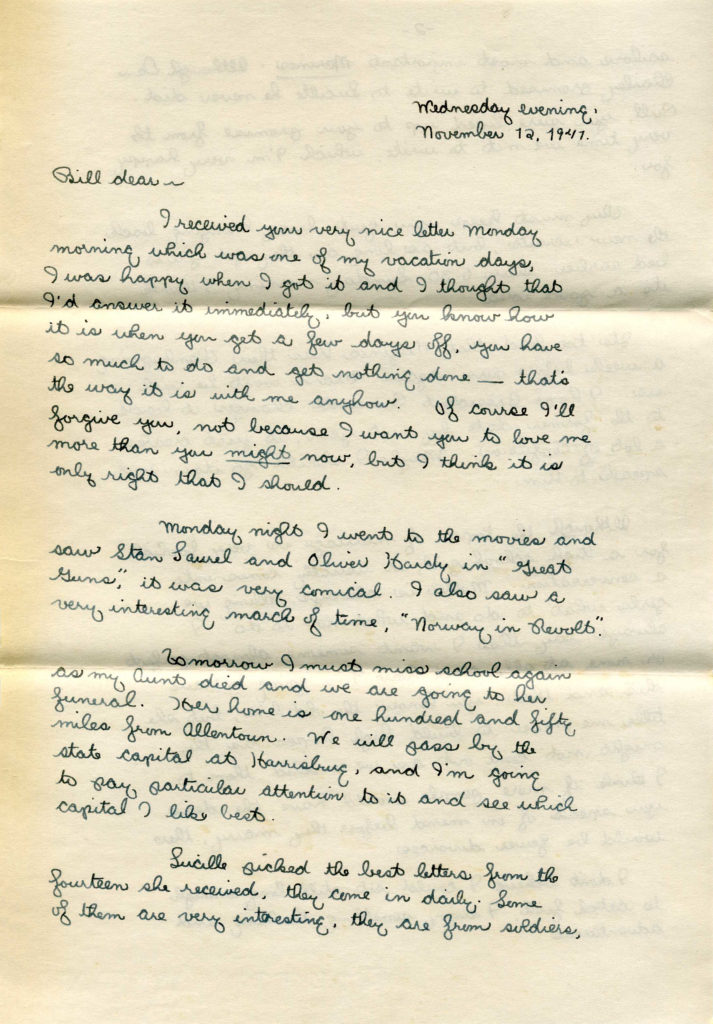 Wednesday evening.
November 12, 1941.
Bill dear ~
I received your very nice letter Monday
morning which was one of my vacation days,
I was happy when I got it and I thought that
I'd answer it immediately, but you know how
it is when you get a few days off, you have
so much to do and get nothing done — that's
the way it is with me anyhow. Of course I'll
forgive you, not because I want you to love me
more than you might now, but I think it is
only right that I should.
Monday night I went to the movies and
saw Stan Laurel and Oliver Hardy in "Great
Guns", it was very comical. I also saw a
very interesting march of time, "Norway in Revolt".
Tomorrow I must miss school again
as my Aunt died and we are going to her
funeral. Her home is one hundred and fifty
miles from Allentown. We will pass by the
state capital at Harrisburg, and I'm going
to pay particular attention to it and see which
capital I like best.
Lucille picked the best letters from the
fourteen she received, they come in daily. Some
of them are very interesting, they are from soldiers,